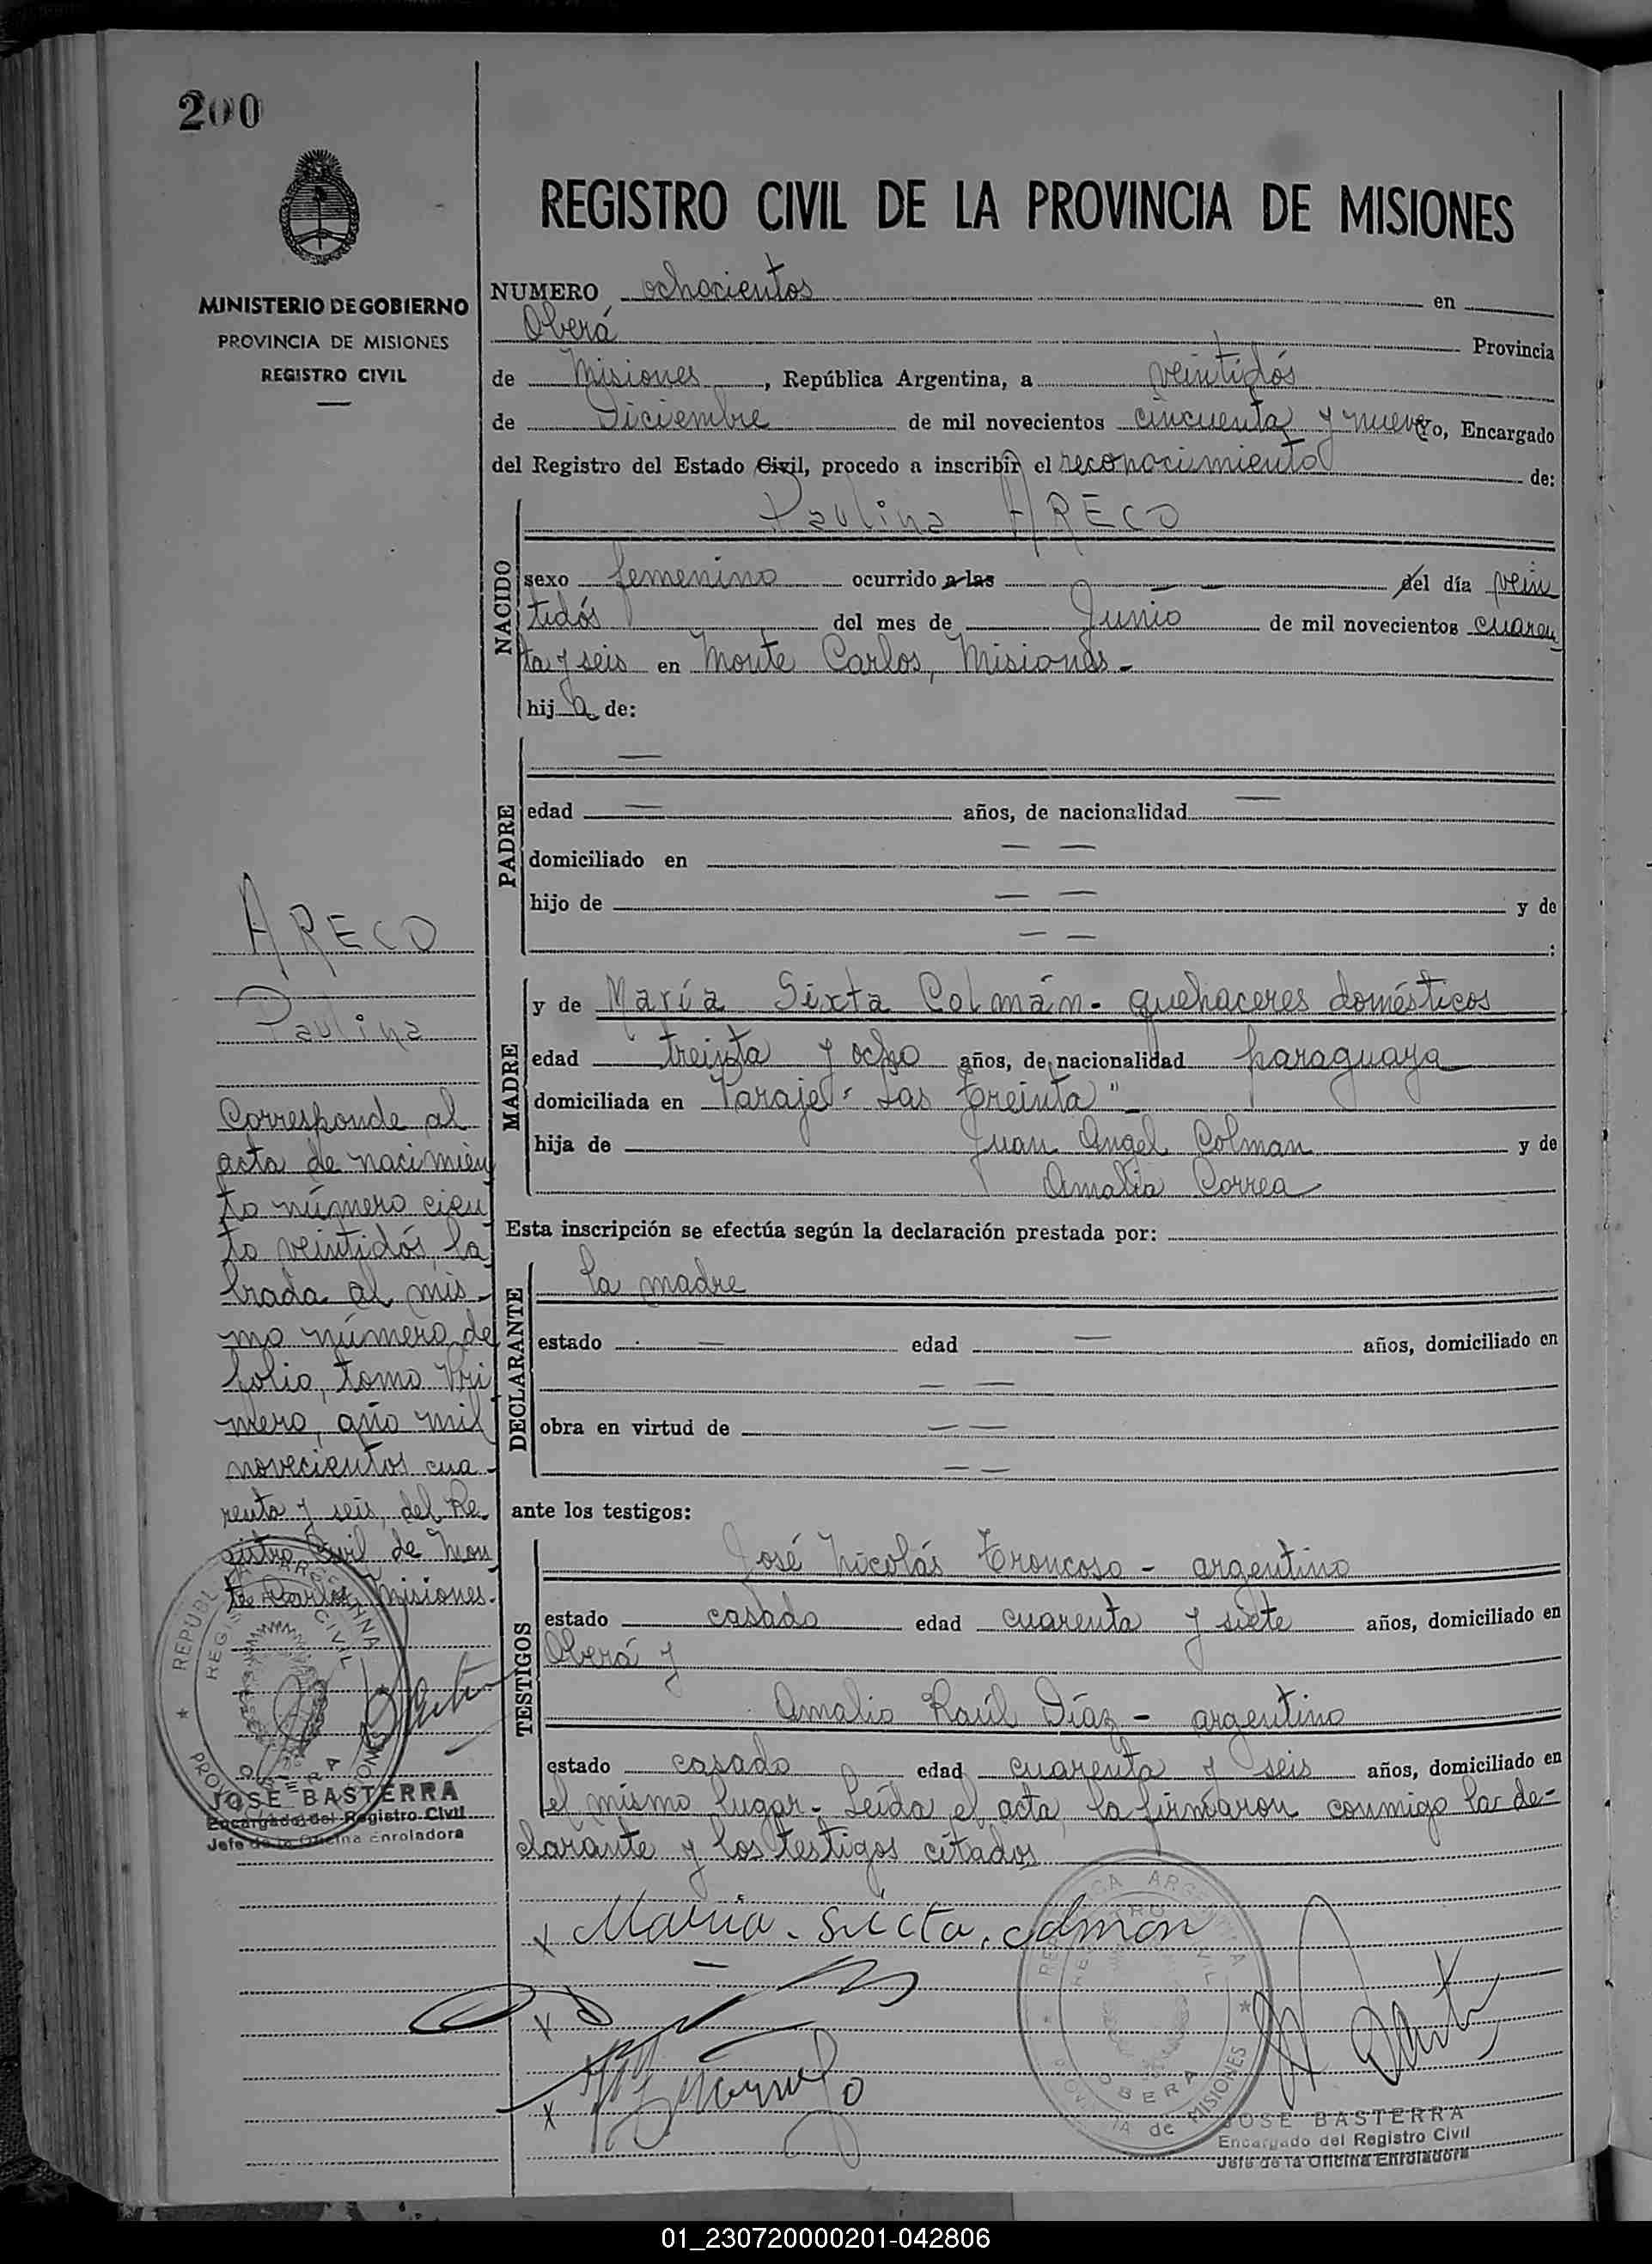 200
MINISTERIO DE GOBIERNO
PROVINCIA DE MISIONES
REGISTRO CIVIL
REGISTRO CIVIL DE LA PROVINCIA DE MISIONES
NUMERO ochocientos en
Oberá Provincia
de Misiones, República Argentina, a veintidós
de Diciembre de mil novecientos cincuenta y nueve yo, Encargado
del Registro del Estado Civil, procedo a inscribir el reconocimiento de:
NACIDO
Paulina ARECO
sexo femenino ocurrido a las — — del día vein
tidós del mes de Junio de mil novecientos cuaren
ta y seis en Monte Carlos, Misiones -
hija de:
PADRE
—
edad — años, de nacionalidad —
domiciliado en — —
hijo de — — y de
— — :
MADRE
y de María Sixta Colmán - quehaceres domésticos
edad treinta y ocho años, de nacionalidad paraguaya
domiciliada en Paraje "Las Treinta" -
hija de Juan Angel Colman y de
Amalia Correa
Esta inscripción se efectúa según la declaración prestada por:
DECLARANTE
la madre
estado — edad — años, domiciliado en
— —
obra en virtud de — —
— —
ante los testigos:
TESTIGOS
José Nicolás Troncoso - argentino
estado casado edad cuarenta y siete años, domiciliado en
Oberá y
Amalio Raúl Díaz - argentino
estado casado edad cuarenta y seis años, domiciliado en
el mismo lugar - Leída el acta, la firmaron conmigo la de-
clarante y los testigos citados
x Maria. Sicta. colman
x
x
ARECO
Paulina
Corresponde al
acta de nacimien
to número cien
to veintidós, la
brada al mis-
mo número de
folio, tomo Pri
mero, año mil
novecientos cua-
renta y seis, del Re-
gistro Civil de Mon
te Carlos, Misiones.
REPUBLICA ARGENTINA
REGISTRO CIVIL
OBERA
PROVINCIA de MISIONES
JOSE BASTERRA
Encargado del Registro Civil
Jefe de la Oficina Enroladora
REPUBLICA ARGENTINA
REGISTRO CIVIL
OBERA
PROVINCIA de MISIONES
JOSE BASTERRA
Encargado del Registro Civil
Jefe de la Oficina Enroladora
01_230720000201-042806